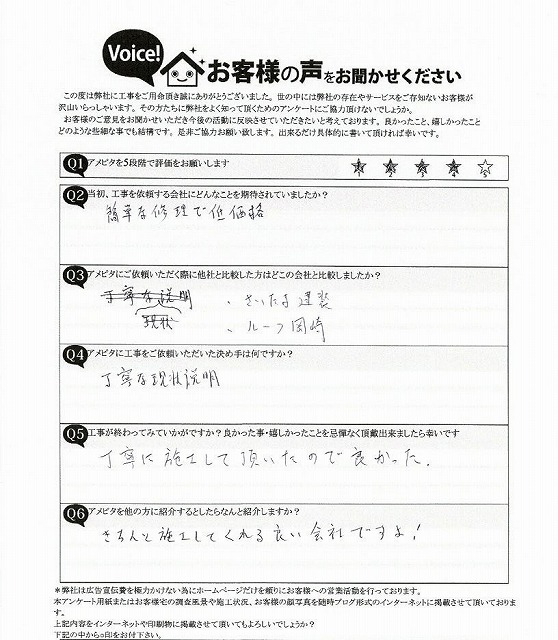 Voice! お客様の声をお聞かせください
この度は弊社に工事をご用命頂き誠にありがとうございました。世の中には弊社の存在やサービスをご存知ないお客様が
沢山いらっしゃいます。その方たちに弊社をよく知って頂くためのアンケートにご協力頂けないでしょうか。
お客様のご意見をお聞かせいただき今後の活動に反映させていただきたいと考えております。良かったこと、嬉しかったこと
どのような些細な事でも結構です。是非ご協力お願い致します。出来るだけ具体的に書いて頂ければ幸いです。
Q1 アメピタを5段階で評価をお願いします
1 2 3 4 5
Q2 当初、工事を依頼する会社にどんなことを期待されていましたか?
簡単な修理で低価格
Q3 アメピタにご依頼いただく際に他社と比較した方はどこの会社と比較しましたか?
丁寧な説明 ・さいたま建装
現状 ・ルーフ岡崎
Q4 アメピタに工事をご依頼いただいた決め手は何ですか?
丁寧な現状説明
Q5 工事が終わってみていかがですか?良かった事・嬉しかったことを忌憚なく頂戴出来ましたら幸いです
丁寧に施工して頂いたので良かった.
Q6 アメピタを他の方に紹介するとしたらなんと紹介しますか?
きちんと施工してくれる良い会社ですよ!
*弊社は広告宣伝費を極力かけない為にホームページだけを頼りにお客様への営業活動を行っております。
本アンケート用紙またはお客様宅の調査風景や施工状況、お客様の顔写真を随時ブログ形式のインターネットに掲載させて頂いておりま
す。
上記内容をインターネットや印刷物に掲載させて頂いてもよろしいでしょうか?
下記の中から○印をお付け下さい。